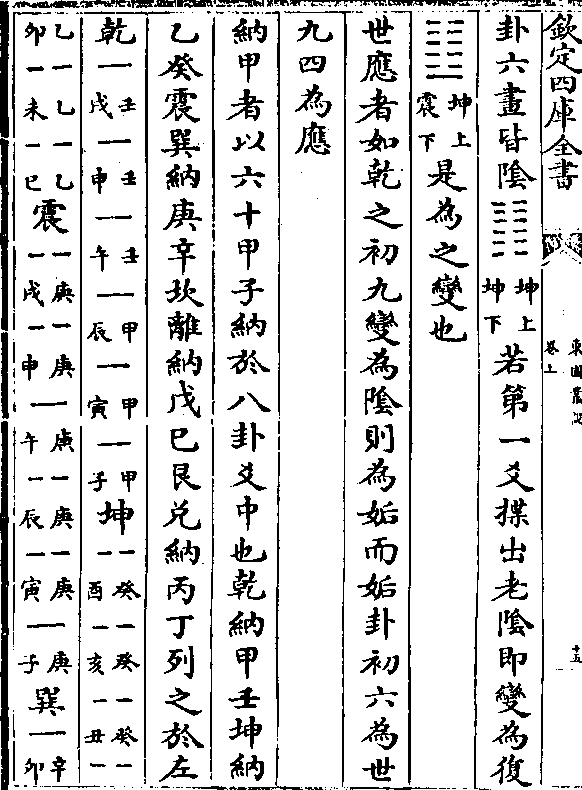 欽定四庫全書
東園叢說
卷上
十五
卦六畫皆陰䷁坤上坤下若第一爻揲出老陰即變為復
䷗坤上震下是為之變也
世應者如乾之初九變為陰則為姤而姤卦初六為世
九四為應
納甲者以六十甲子納於八卦爻中也乾納甲壬坤納
乙癸震巽納庚辛坎離納戊巳艮兌納丙丁列之於左
乾一壬戌一壬申一壬午一甲辰一甲寅一甲子坤一一癸酉一一癸亥一一癸丑一一
乙卯一一乙未一一乙巳震一一庚戌一一庚申一庚午一一庚辰一一庚寅一庚子巽一辛卯